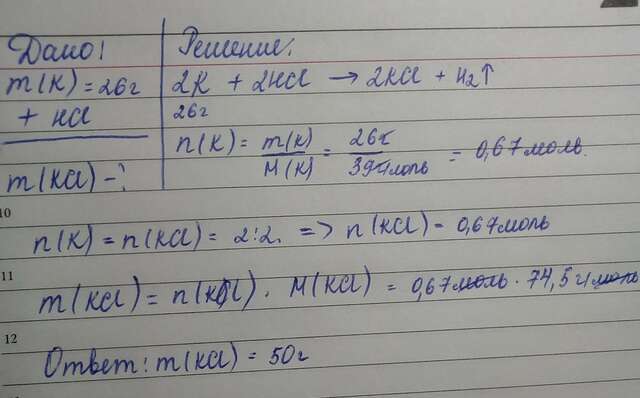 Дано:
m(K) = 26г
+ HCl
m(KCl) - ?
Решение:
2K + 2HCl → 2KCl + H₂↑
26г
n(K) = m(K)/M(K) = 26г/39г/моль = 0,67 моль.
10
n(K) = n(KCl) = 2:2. => n(KCl) = 0,67 моль
11
m(KCl) = n(KCl) · M(KCl) = 0,67 моль · 74,5 г/моль
12
Ответ: m(KCl) = 50г